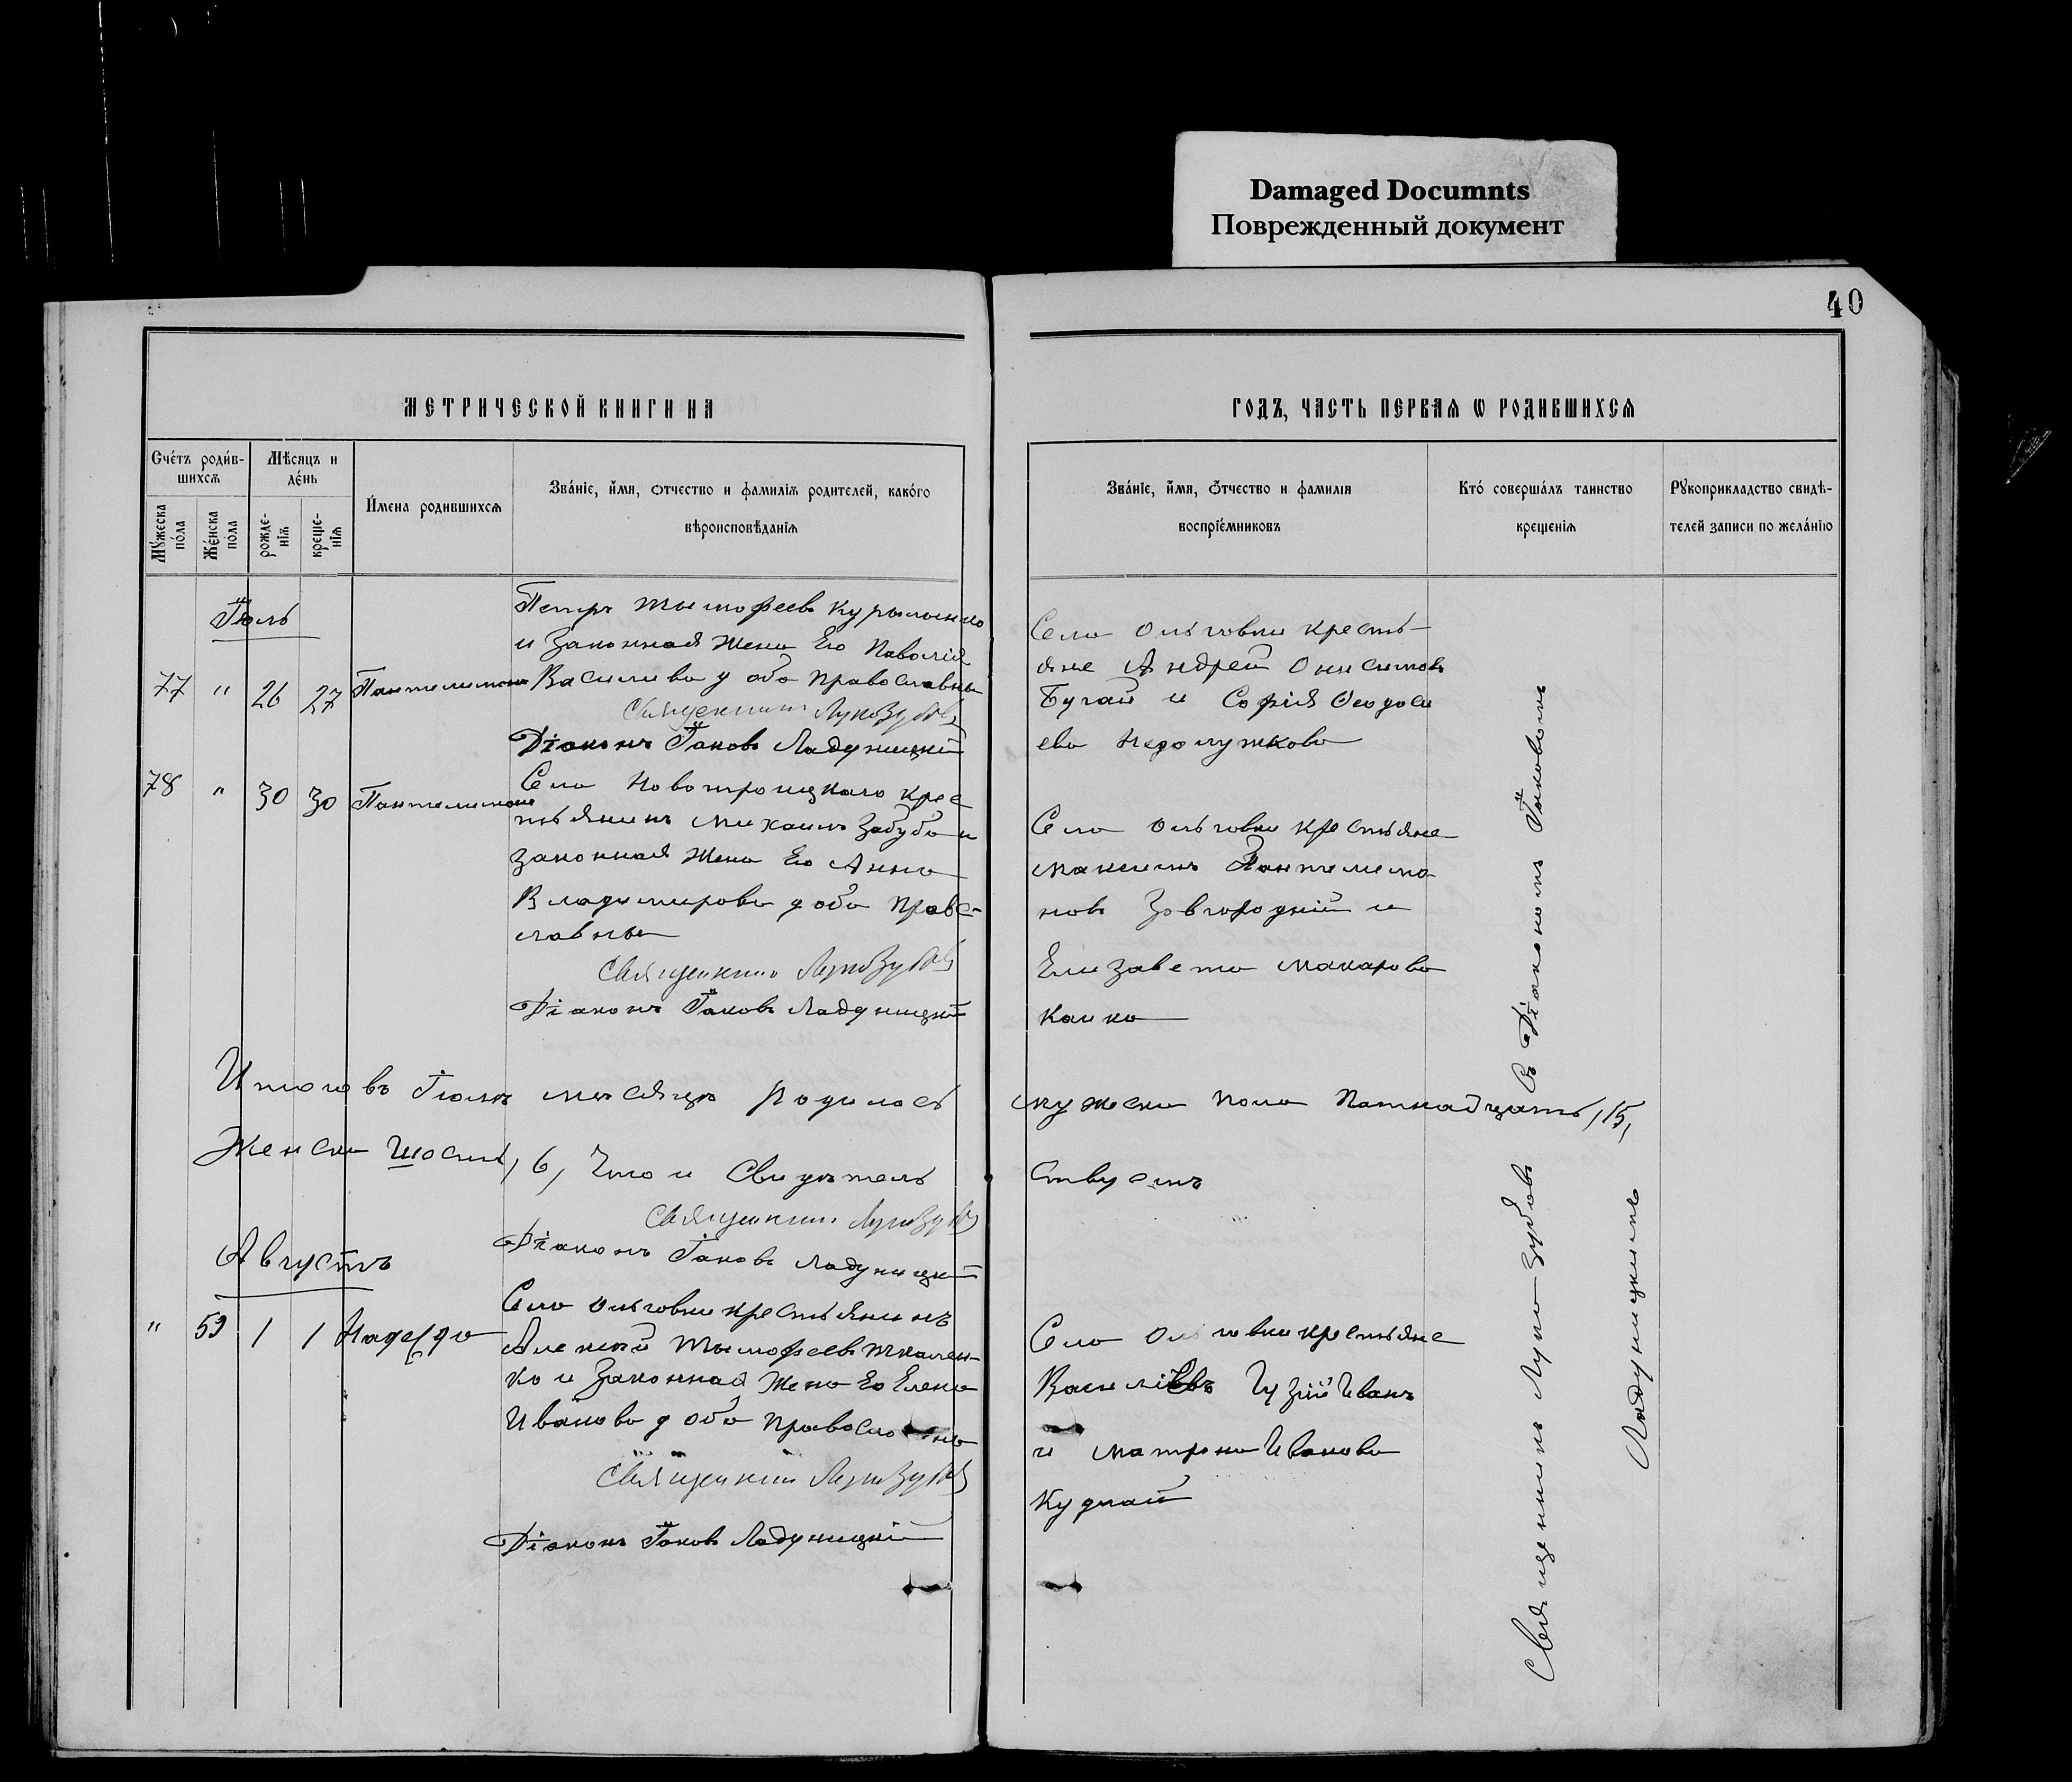 Damaged Documnts
Поврежденный документ
40
МЕТРИЧЕСКОЙ КНИГИ НА
ГОДЪ, ЧАСТЬ ПЕРВАЯ Ѡ РОДИВШИХСЯ
Счетъ родив-
шихся
Мѣсяцъ и
день
Мужеска
пола
Женска
пола
рожде-
нія
креще-
нія
Имена родившихся
Званіе, имя, отчество и фамилія родителей, какого
вѣроисповѣданія
Званіе, имя, отчество и фамилія
воспріемниковъ
Кто совершалъ таинство
крещенія
Рукоприкладство свидѣ-
телей записи по желанію
Іюль
77 " 26 27 Пантелимонъ
Петръ Тымофеевъ
и Законная Жена Его
Василива у оба православны
Священникъ Лука Зубовъ
Діаконъ Іаковъ Ладуницкій
Села Ольговки кресть-
яне Андрей Онисимовъ
Бугай и Софія Феодоси
ева Недолужкова
78 " 30 30 Пантелимонъ
Село Новотроицкаго крес
тьянинъ Михаилъ Забуба и
законная Жена Его Анна
Владимирова у оба право-
славны
Священникъ Лука Зубовъ
Діаконъ Іаковъ Ладуницкій
Села Ольговки крестьяне
Максимъ Пантелимо
новъ Завгородній и
Елизавета Макарова
Кайка
Итого въ Іюлѣ месяцѣ родилось мужеска пола Патнадцать, 15,
Женска Шость, 6, Что и Свидѣтель ствуемъ
Священникъ Лука Зубовъ
Діаконъ Іаковъ Ладуницкій
Августъ
" 59 1 1 Надежда
Села Ольговки крестьянинъ
Алексей Тымофеевъ Ткален-
ко и Законная Жена Его Елена
Иванова у оба
Священникъ Лука Зубовъ
Діаконъ Іаковъ Ладуницкій
Села Ольговки крестьяне
Гузій Иванъ
и Матрона Иванова
Кудлай
Священникъ Лука Зубовъ съ Діакономъ Іаковомъ
Ладуницкимъ